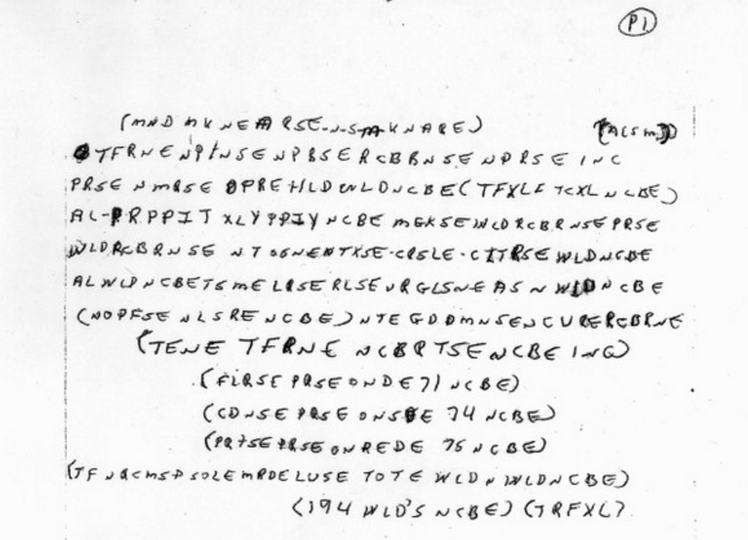 P1
(MND MKNEARSE-N-S-M-KNARE) (ACSM)
TFRNENPINSENPBSERCBBRNSENPRSEINC
PRSENMRSEOPREHLDWLDNCBE(TFXLFTCXLNCBE)
AL-PRPPITXLYPPIYNCBEMGKSEWLDRCBRNSEPRSE
WLDRCBRNSENTSGNENTXSE-CRSLE-CITRSEWLDNCBE
ALWLDNCBETSMELRSERLSEURGLSNEASNWLDNCBE
(NOPFSENLSRENCBE)NTEGDDMNSENCURERCBRNE
(TENETFRNENCBRTSENCBEING)
(FLRSEPRSEONDE71NCBE)
(CDNSEPRSEONSDE74NCBE)
(PRTSEPRSEONREDE75NCBE)
(TFNRCMSPSOLEMRDELUSETOTEWLDNWLDNCBE)
(194WLD'SNCBE)(TRFXL)